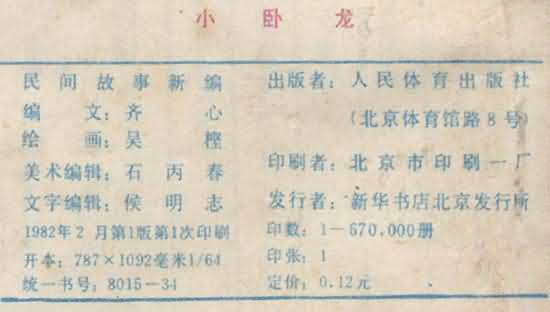 小卧龙
民间故事新编
编文：齐心
绘画：吴樫
美术编辑：石丙春
文字编辑：侯明志
1982年2月第1版第1次印刷
开本：787×1092毫米1/64
统一书号：8015-34
出版者：人民体育出版社
（北京体育馆路8号）
印刷者：北京市印刷一厂
发行者：新华书店北京发行所
印数：1—670,000册
印张：1
定价：0.12元